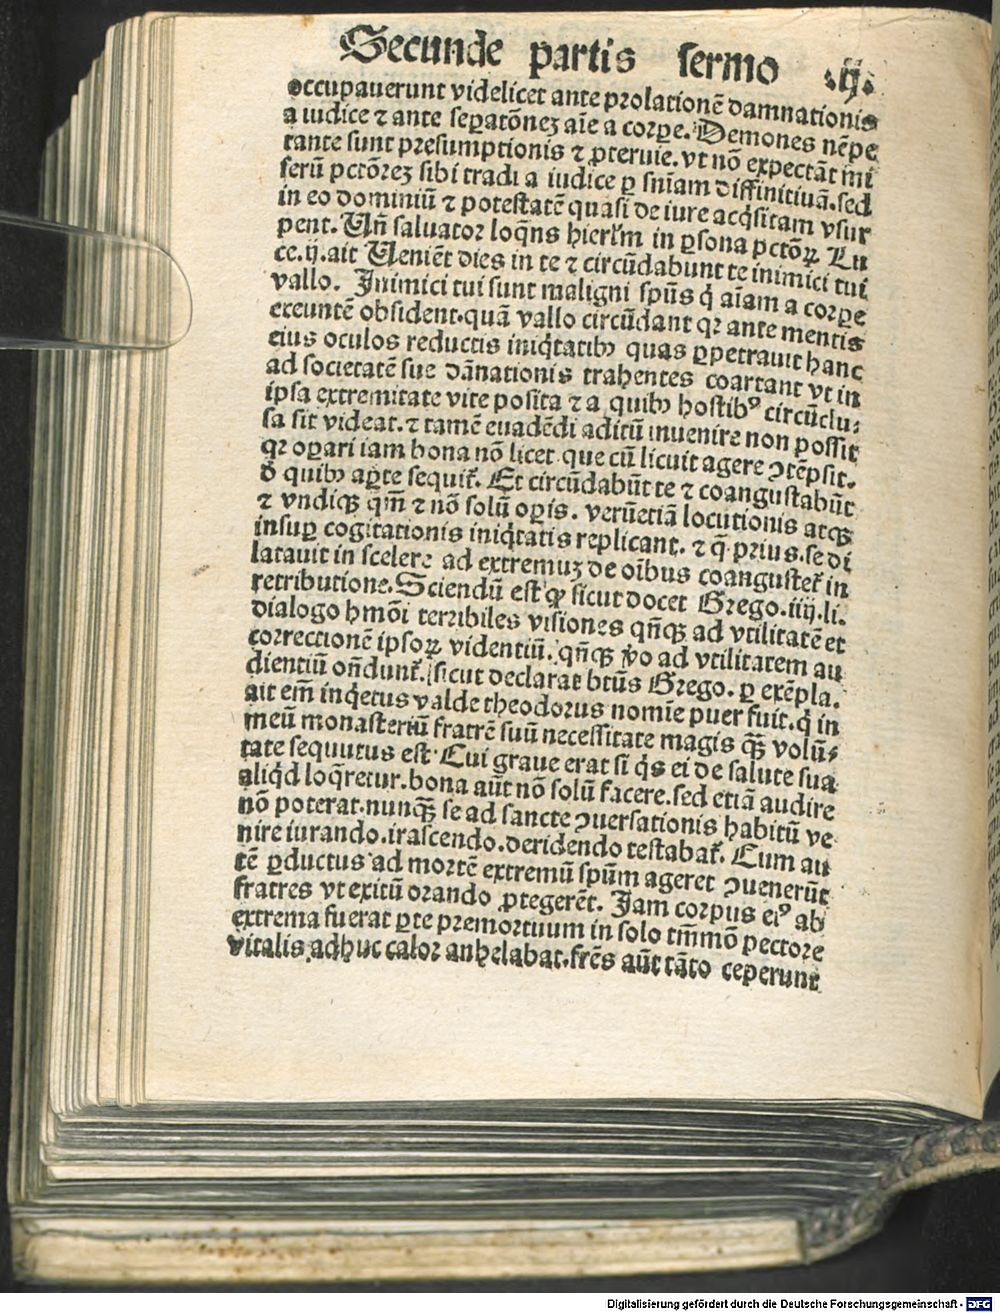 Secunde partis sermo .ij.
occupauerunt videlicet ante prolationē damnationis
a iudice ⁊ ante seꝑatōneꝫ aīe a corꝑe. Demones nēpe
tante sunt presumptionis ⁊ ꝓteruie. vt nō expectāt mi
serū pctōreꝫ sibi tradi a iudice ꝑ snīam diffinitiuā. sed
in eo dominiū ⁊ potestatē quasi de iure acq̇sitam vsur
pent. Uñ saluator loq̄ns hierl̄m in ꝑsona pctōꝝ Lu
ce. ij. ait Ueniēt dies in te ⁊ circūdabunt te inimici tui
vallo. Inimici tui sunt maligni spūs q̇ aīam a corꝑe
exeuntē obsident. quā vallo circūdant qꝛ ante mentis
eius oculos reductis iniq̇tatibꝰ quas ꝑpetrauit hanc
ad societatē sue dānationis trahentes coartant vt in
ipsa extremitate vite posita ⁊ a quibꝰ hostibꝰ circūclu⸗
sa sit videat. ⁊ tamē euadēdi aditū inuenire non possit
qꝛ oꝑari iam bona nō licet que cū licuit agere ↄtēpsit.
đ quibꝰ aꝑte sequit̄. Et circūdabūt te ⁊ coangustabūt
⁊ vndiqꝫ qm̄ ⁊ nō solū oꝑis. verūetiā locutionis atqꝫ
insuꝑ cogitationis iniq̇tatis replicant. ⁊ q̄ prius. se di
latauit in scelere ad extremuꝫ de oībus coangustet̄ in
retributione. Sciendū est ꝙ sicut docet Grego. iiij. li.
dialogo hmōi terribiles visiones qn̄qꝫ ad vtilitatē et
correctionē ipsoꝝ videntiū. qn̄qꝫ v̊o ad vtilitatem au
dientiū on̄dunt̄. sicut declarat btūs Grego. ꝑ exēpla.
ait em̄ inq̇etus valde theodorus nomīe puer fuit. q̇ in
meū monasteriū fratrē suū necessitate magis qꝫ̄ volū⸗
tate sequutus est. Cui graue erat si q̇s ei de salute sua
aliq̇d loq̄retur. bona aūt nō solū facere. sed etiā audire
nō poterat. nunqꝫ̄ se ad sancte ↄuersationis habitū ve
nire iurando. irascendo. deridendo testabat̄. Cum au
tē ꝑductus ad mortē extremū spūm ageret ↄuenerūt
fratres vt exitū orando ꝓtegerēt. Iam corpus eiꝰ ab
extrema fuerat ꝑte premortuum in solo tm̄mō pectore
vitalis adhuc calor anhelabat. frēs aūt tāto ceperunt
Digitalisierung gefördert durch die Deutsche Forschungsgemeinschaft - DFG